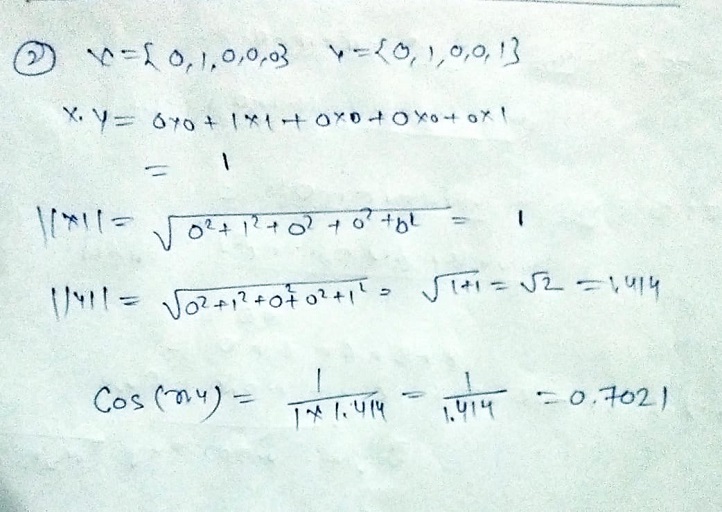 ② x={0,1,0,0,0} y={0,1,0,0,1}
x.y= 0x0 + 1x1 + 0x0 + 0x0 + 0x1
= 1
||x||= √0²+1²+0²+0²+0² = 1
||y||= √0²+1²+0²+0²+1² = √1+1 = √2 = 1.414
Cos(xy) = 1/1x1.414 = 1/1.414 = 0.7021